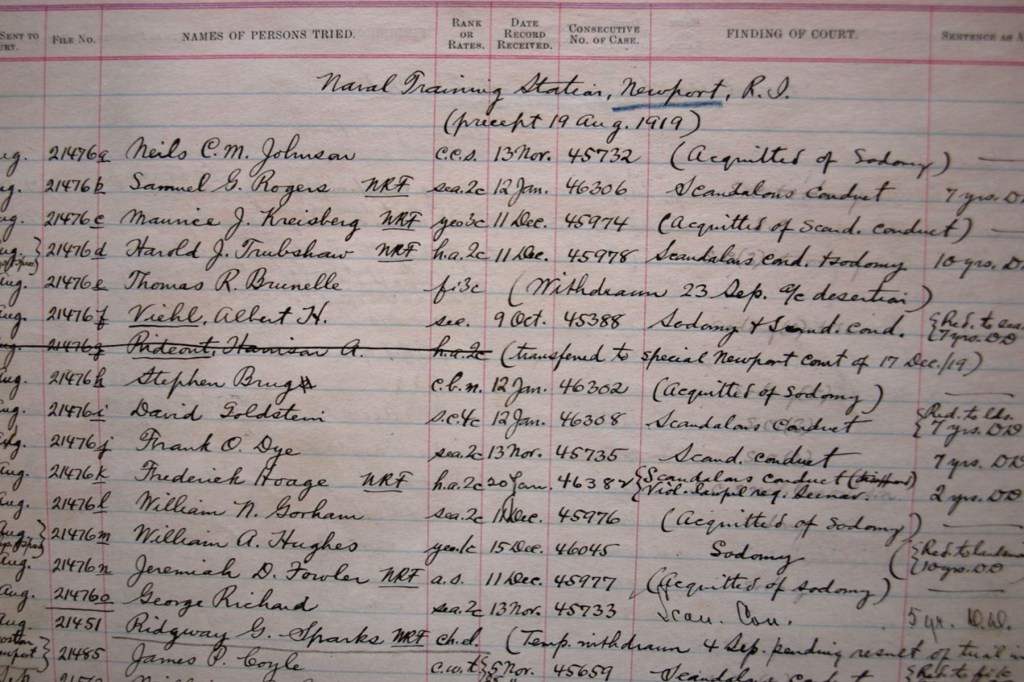 SENT TO URT. FILE NO. NAMES OF PERSONS TRIED. RANK OR RATES. DATE RECORD RECEIVED. CONSECUTIVE NO. OF CASE. FINDING OF COURT. SENTENCE AS A
Naval Training Station, Newport, R.I.
(precept 19 Aug. 1919)
ug. 21476a Neils C.M. Johnson c.c.s. 13 Nov. 45732 (Acquitted of Sodomy) —
ug. 21476b Samuel G. Rogers NRF sea.2c 12 Jan. 46306 Scandalous Conduct 7 yrs. DD
ug. 21476c Maurice J. Kreisberg NRF yeo3c 11 Dec. 45974 (Acquitted of Scand. conduct) —
ug. 21476d Harold J. Trubshaw NRF h.a.2c 11 Dec. 45978 Scandalous cond. + sodomy 10 yrs. D.
ug. 21476e Thomas R. Brunelle fi3c (Withdrawn 23 Sep. a/c desertion)
ug. 21476f Viehl, Albert H. sec. 9 Oct. 45388 Sodomy + Scand. cond. {Red. to sea. 7 yrs. DD
ug. 21476g Rideout, Harrison A. h.a.2c (transferred to special Newport court of 17 Dec./19)
ug. 21476h Stephen Brug c.b.m. 12 Jan. 46302 (Acquitted of Sodomy) —
ug. 21476i David Goldstein s.c.4c 12 Jan. 46308 Scandalous Conduct {Red. to lds. 7 yrs. DD
ug. 21476j Frank O. Dye sea.2c 13 Nov. 45735 Scand. conduct 7 yrs. DD
Aug. 21476k Frederick Hoage NRF h.a.2c 20 Jan. 46382 {Scandalous conduct 2 yrs. DD
Aug. 21476l William N. Gorham sea.2c 11 Dec. 45976 (Acquitted of Sodomy) —
Aug. 21476m William A. Hughes yeo.1c 15 Dec. 46045 Sodomy 10 yrs. DD
Aug. 21476n Jeremiah D. Fowler NRF a.s. 11 Dec. 45977 (Acquitted of sodomy) —
Aug. 21476o George Richard sea.2c 13 Nov. 45733 Scan. Con. 5 yr. D.D.
Aug. 21451 Ridgway G. Sparks NRF ch.el. (Temp. withdrawn 4 Sep. pending result of trial in
21485 James P. Coyle c.w.t. 5 Nov. 45659 Scandalous Red. to fi